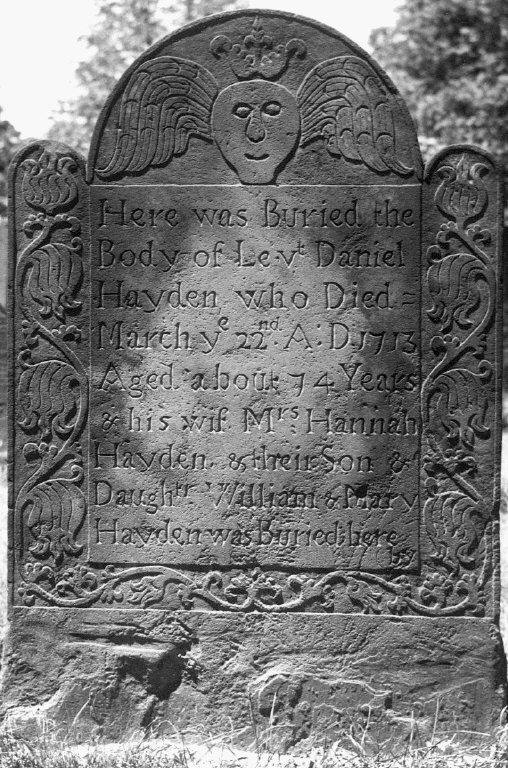 Here was Buried the
Body of Le·vt Daniel
Hayden who Died =
March ye 22nd A:D 1713
Aged about 74 Years
& his wif Mrs Hannah
Hayden & their Son &
Daughtr William & Mary
Hayden was Buried here
by